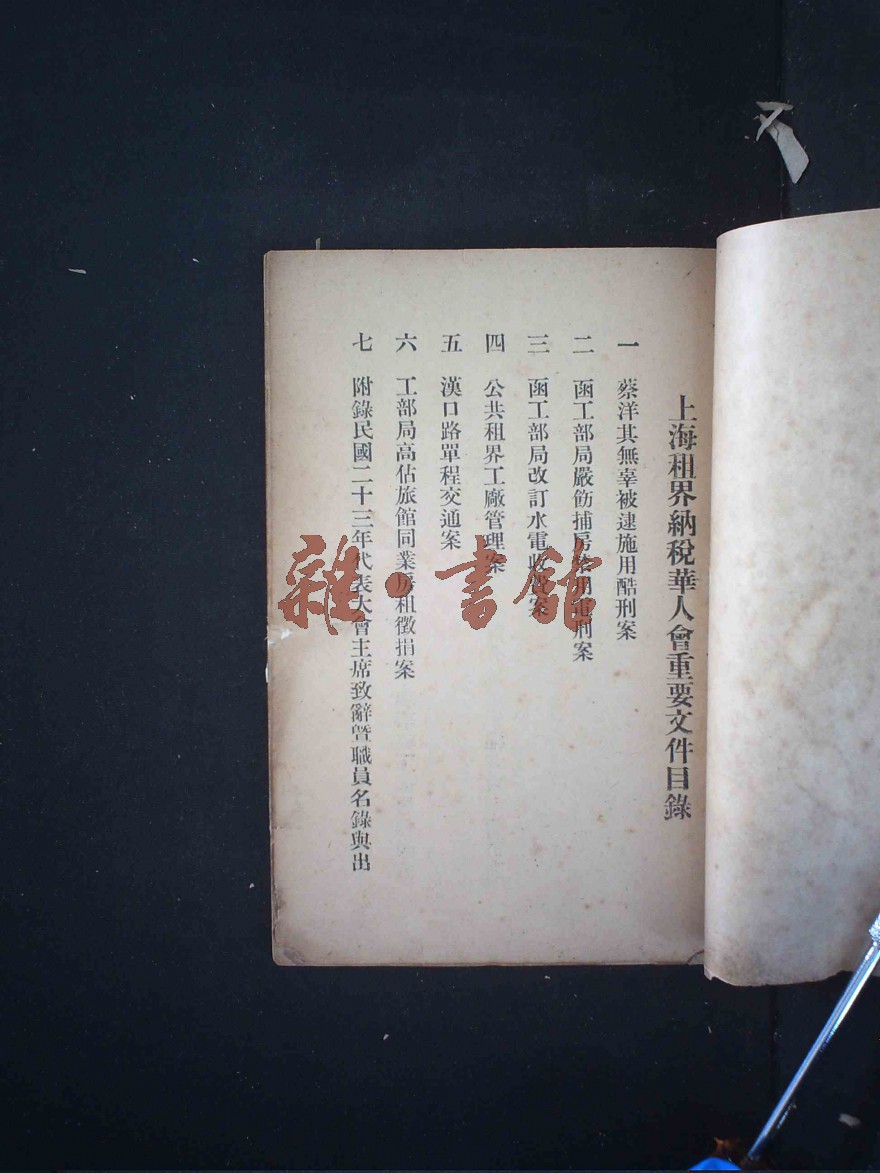 上海租界納稅華人會重要文件目錄
一 蔡洋其無辜被逮施用酷刑案
二 函工部局嚴飭捕房禁用電刑案
三 函工部局改訂水電收費案
四 公共租界工廠管理案
五 漢口路單程交通案
六 工部局高估旅館同業房租徵捐案
七 附錄民國二十三年代表大會主席致辭暨職員名錄與出
雜·書館